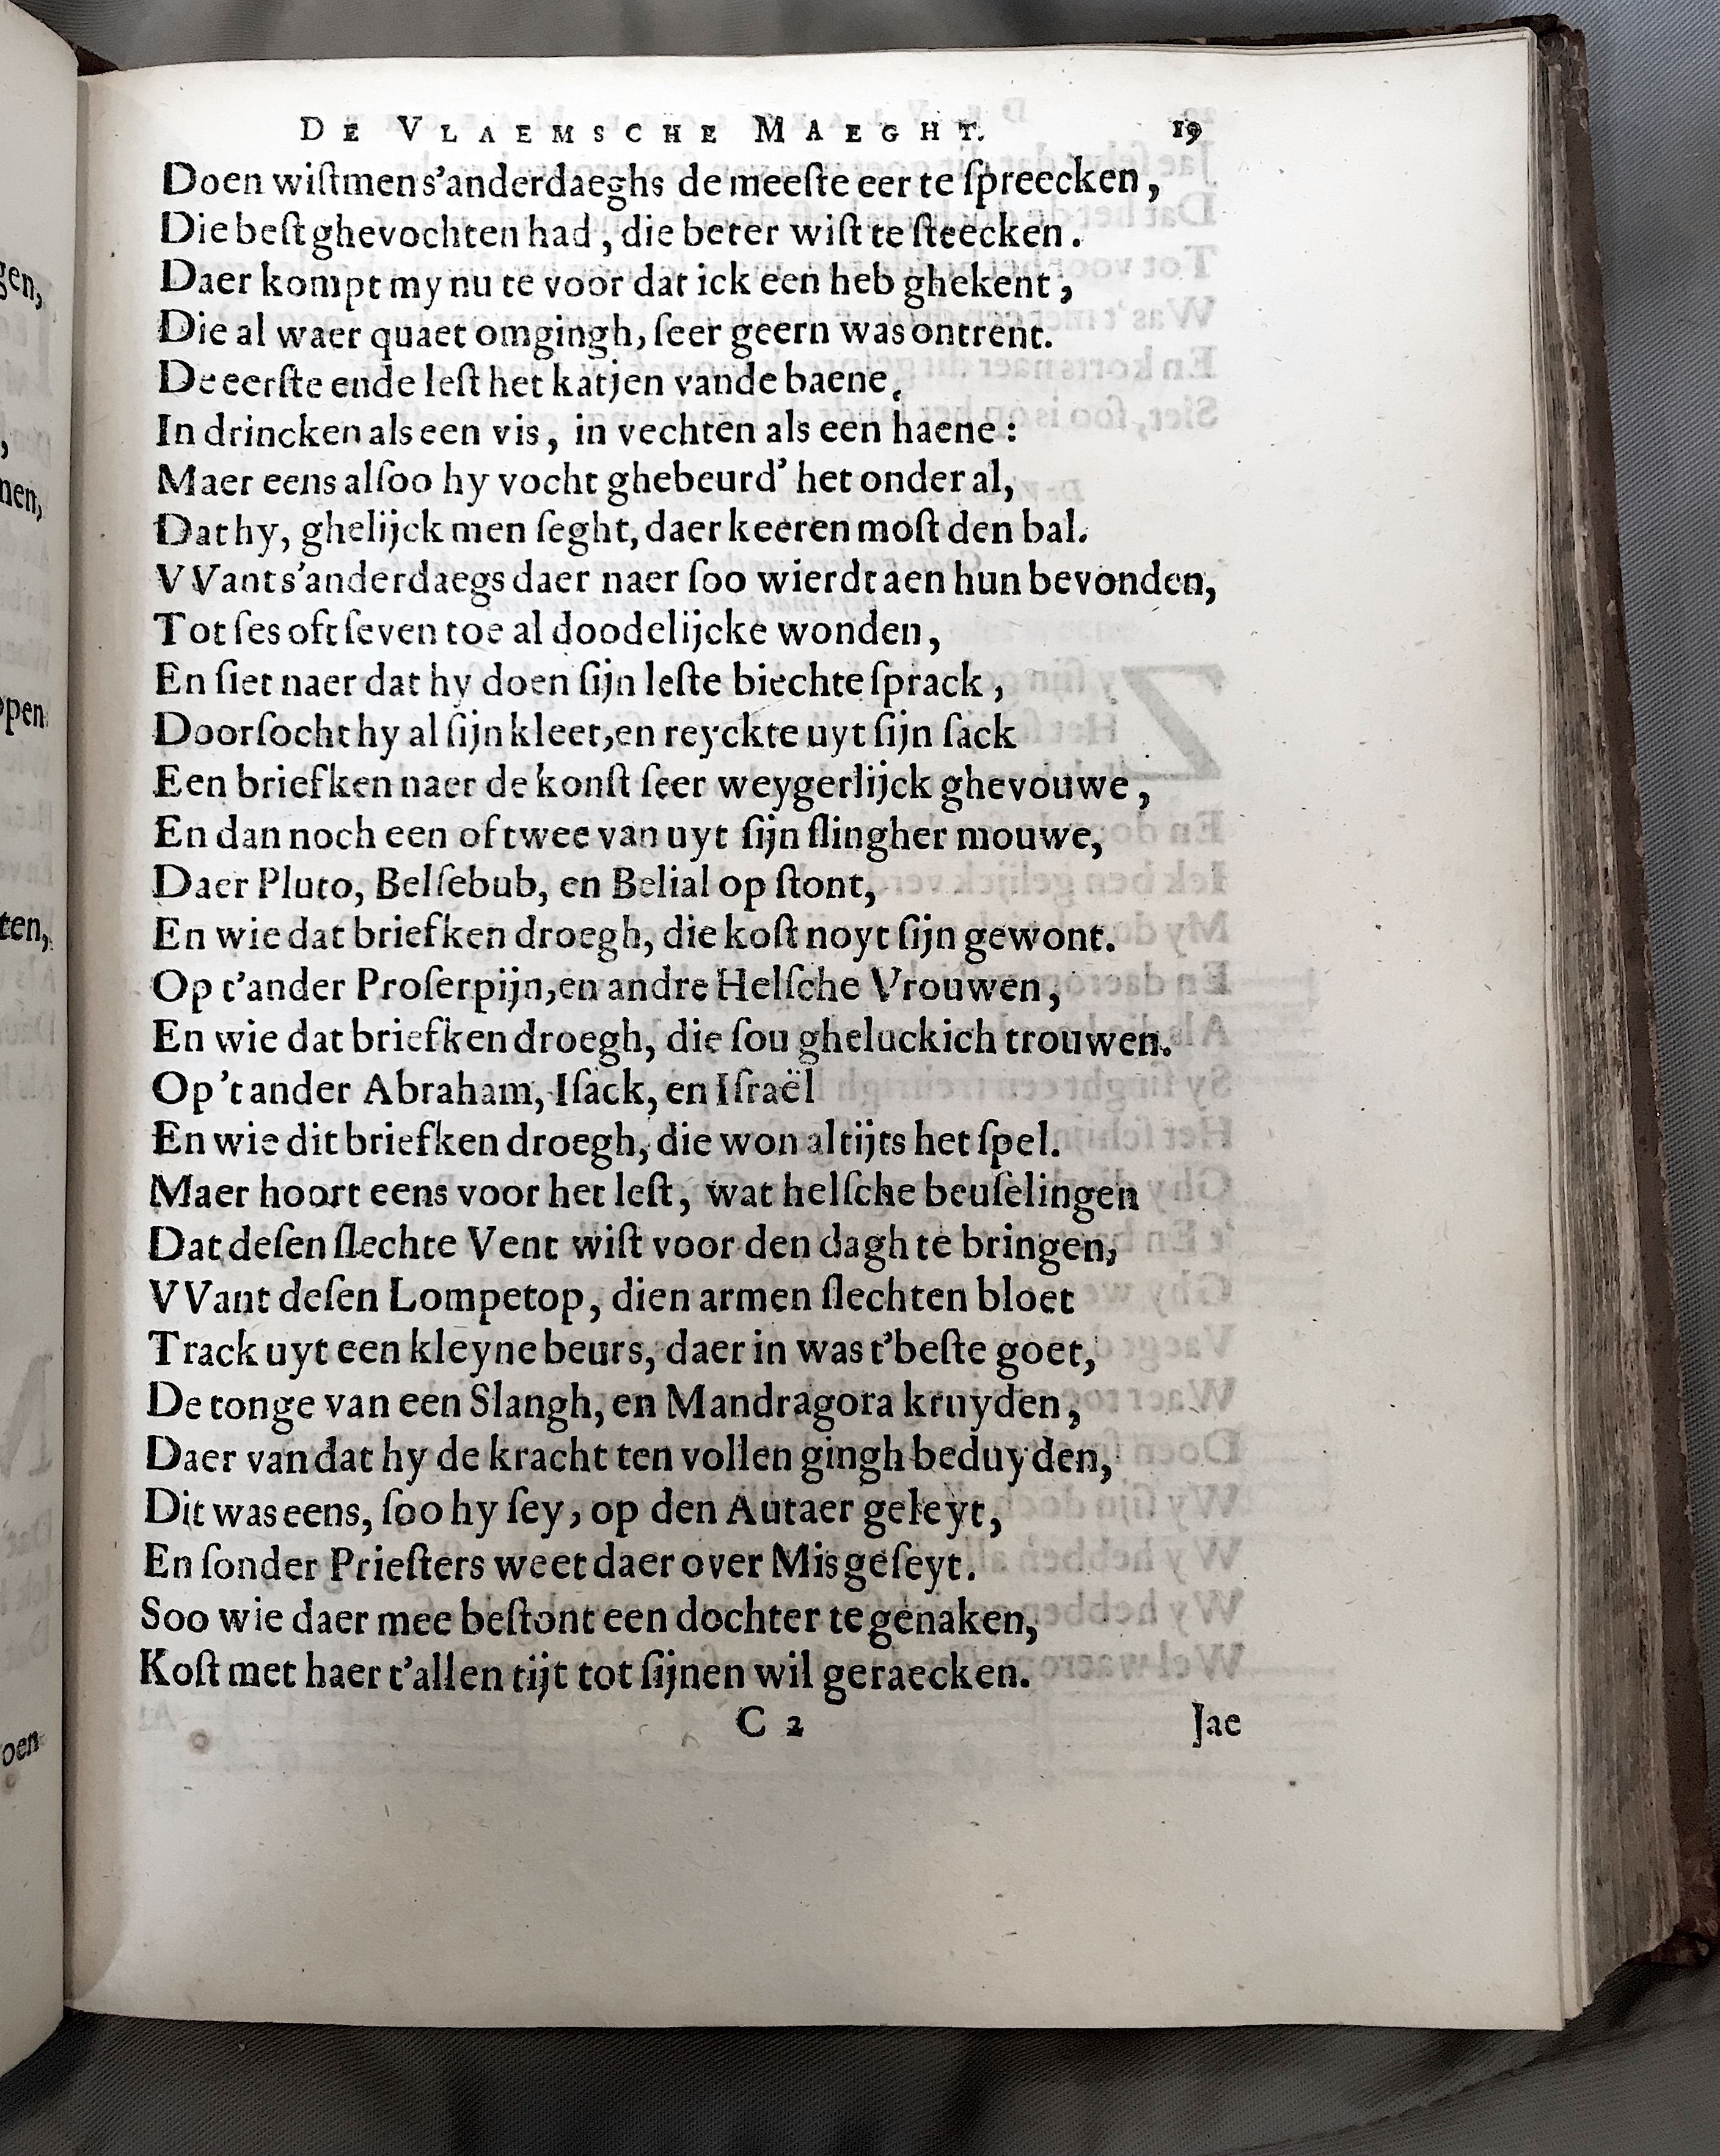 DE VLAEMSCHE MAEGHT. 19
Doen wiſtmen s'anderdaeghs de meeſte eer te ſpreecken,
Die beſt ghevochten had, die beter wiſt te ſteecken.
Daer kompt my nu te voor dat ick een heb ghekent,
Die al waer quaet omgingh, ſeer geern was ontrent.
De eerſte ende leſt het katjen vande baene,
In drincken als een vis, in vechten als een haene:
Maer eens alſoo hy vocht ghebeurd' het onder al,
Dat hy, ghelijck men ſeght, daer keeren moſt den bal.
VVant s'anderdaegs daer naer ſoo wierdt aen hun bevonden,
Tot ſes oft ſeven toe al doodelijcke wonden,
En ſiet naer dat hy doen ſijn leſte biechte ſprack,
Doorſocht hy al ſijn kleet, en reyckte uyt ſijn ſack
Een briefken naer de konſt ſeer weygerlijck ghevouwe,
En dan noch een of twee van uyt ſijn ſlingher mouwe,
Daer Pluto, Belſebub, en Belial op ſtont,
En wie dat briefken droegh, die koſt noyt ſijn gewont.
Op t'ander Proſerpijn, en andre Helſche Vrouwen,
En wie dat briefken droegh, die ſou gheluckich trouwen.
Op 't ander Abraham, Iſack, en Iſraël
En wie dit briefken droegh, die won altijts het ſpel.
Maer hoort eens voor het leſt, wat helſche beuſelingen
Dat deſen ſlechte Vent wiſt voor den dagh te bringen,
VVant deſen Lompetop, dien armen ſlechten bloet
Track uyt een kleyne beurs, daer in was t'beſte goet,
De tonge van een Slangh, en Mandragora kruyden,
Daer van dat hy de kracht ten vollen gingh beduyden,
Dit was eens, ſoo hy ſey, op den Autaer geleyt,
En ſonder Prieſters weet daer over Mis geſeyt.
Soo wie daer mee beſtont een dochter te genaken,
Koſt met haer t'allen tijt tot ſijnen wil geraecken.
C 2 Jae
gen,
nen,
ppen
ten,
oen-